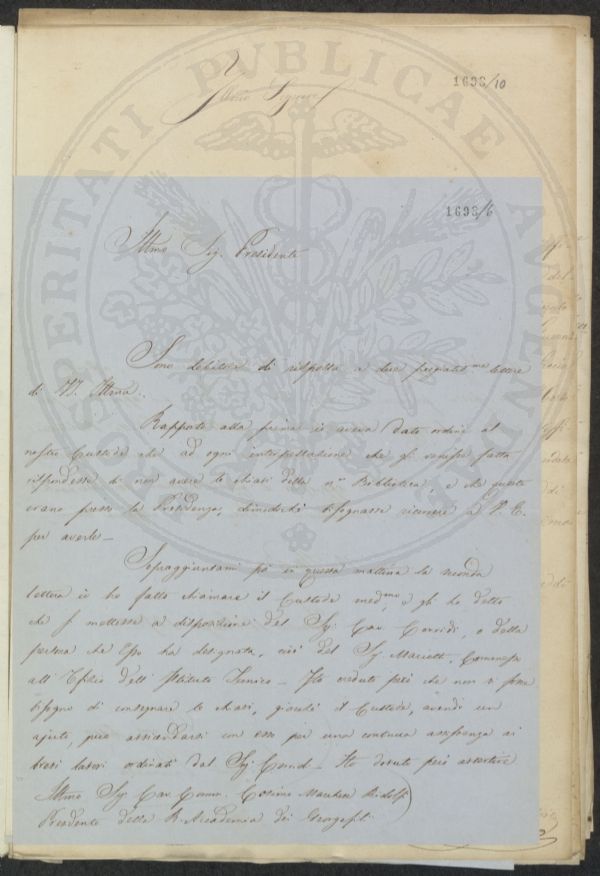 1693/10
Illmo Signore
1693/6
Illmo Sig. Presidente
Sono debitore di risposta a due pregiatme lettere
di V. Illma.
Rapporto alla prima io aveva dato ordine al
nostro Custode che ad ogni interpellazione che gli venisse fatta
rispondesse di non avere le chiavi della na Biblioteca, e che queste
erano presso la Presidenza, dimodochè bisognasse ricorrere a V. E.
per averle —
Sopraggiuntami poi in questa mattina la seconda
lettera io ho fatto chiamare il Custode medmo, e gli ho detto
che si mettesse a disposizione del Sig. Cav. Corridi, o della
persona che Esso ha designata, cioè del Sig. Mariotti, Commesso
all' Ufizio dell' Istituto Tecnico — Ho creduto però che non vi fosse
bisogno di consegnare le chiavi, giacchè il Custode, avendo un
ajuto, può assicurarsi con esso per una continua assistenza ai
lavori ordinati dal Sig. Corridi — Ho dovuto però avvertire
Illmo Sig. Cav. Comm. Cosimo Marchese Ridolfi
Presidente della R. Accademia dei Georgofili
PROSPERITATI PUBLICAE AUGENDAE